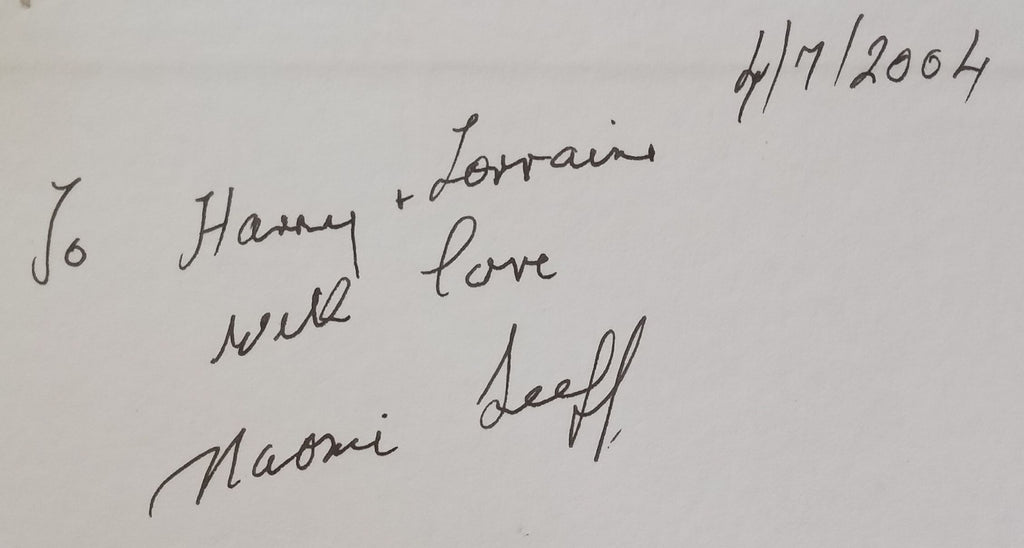 4/7/2004
To Harry + Lorraine
with love
Naomi Seeff